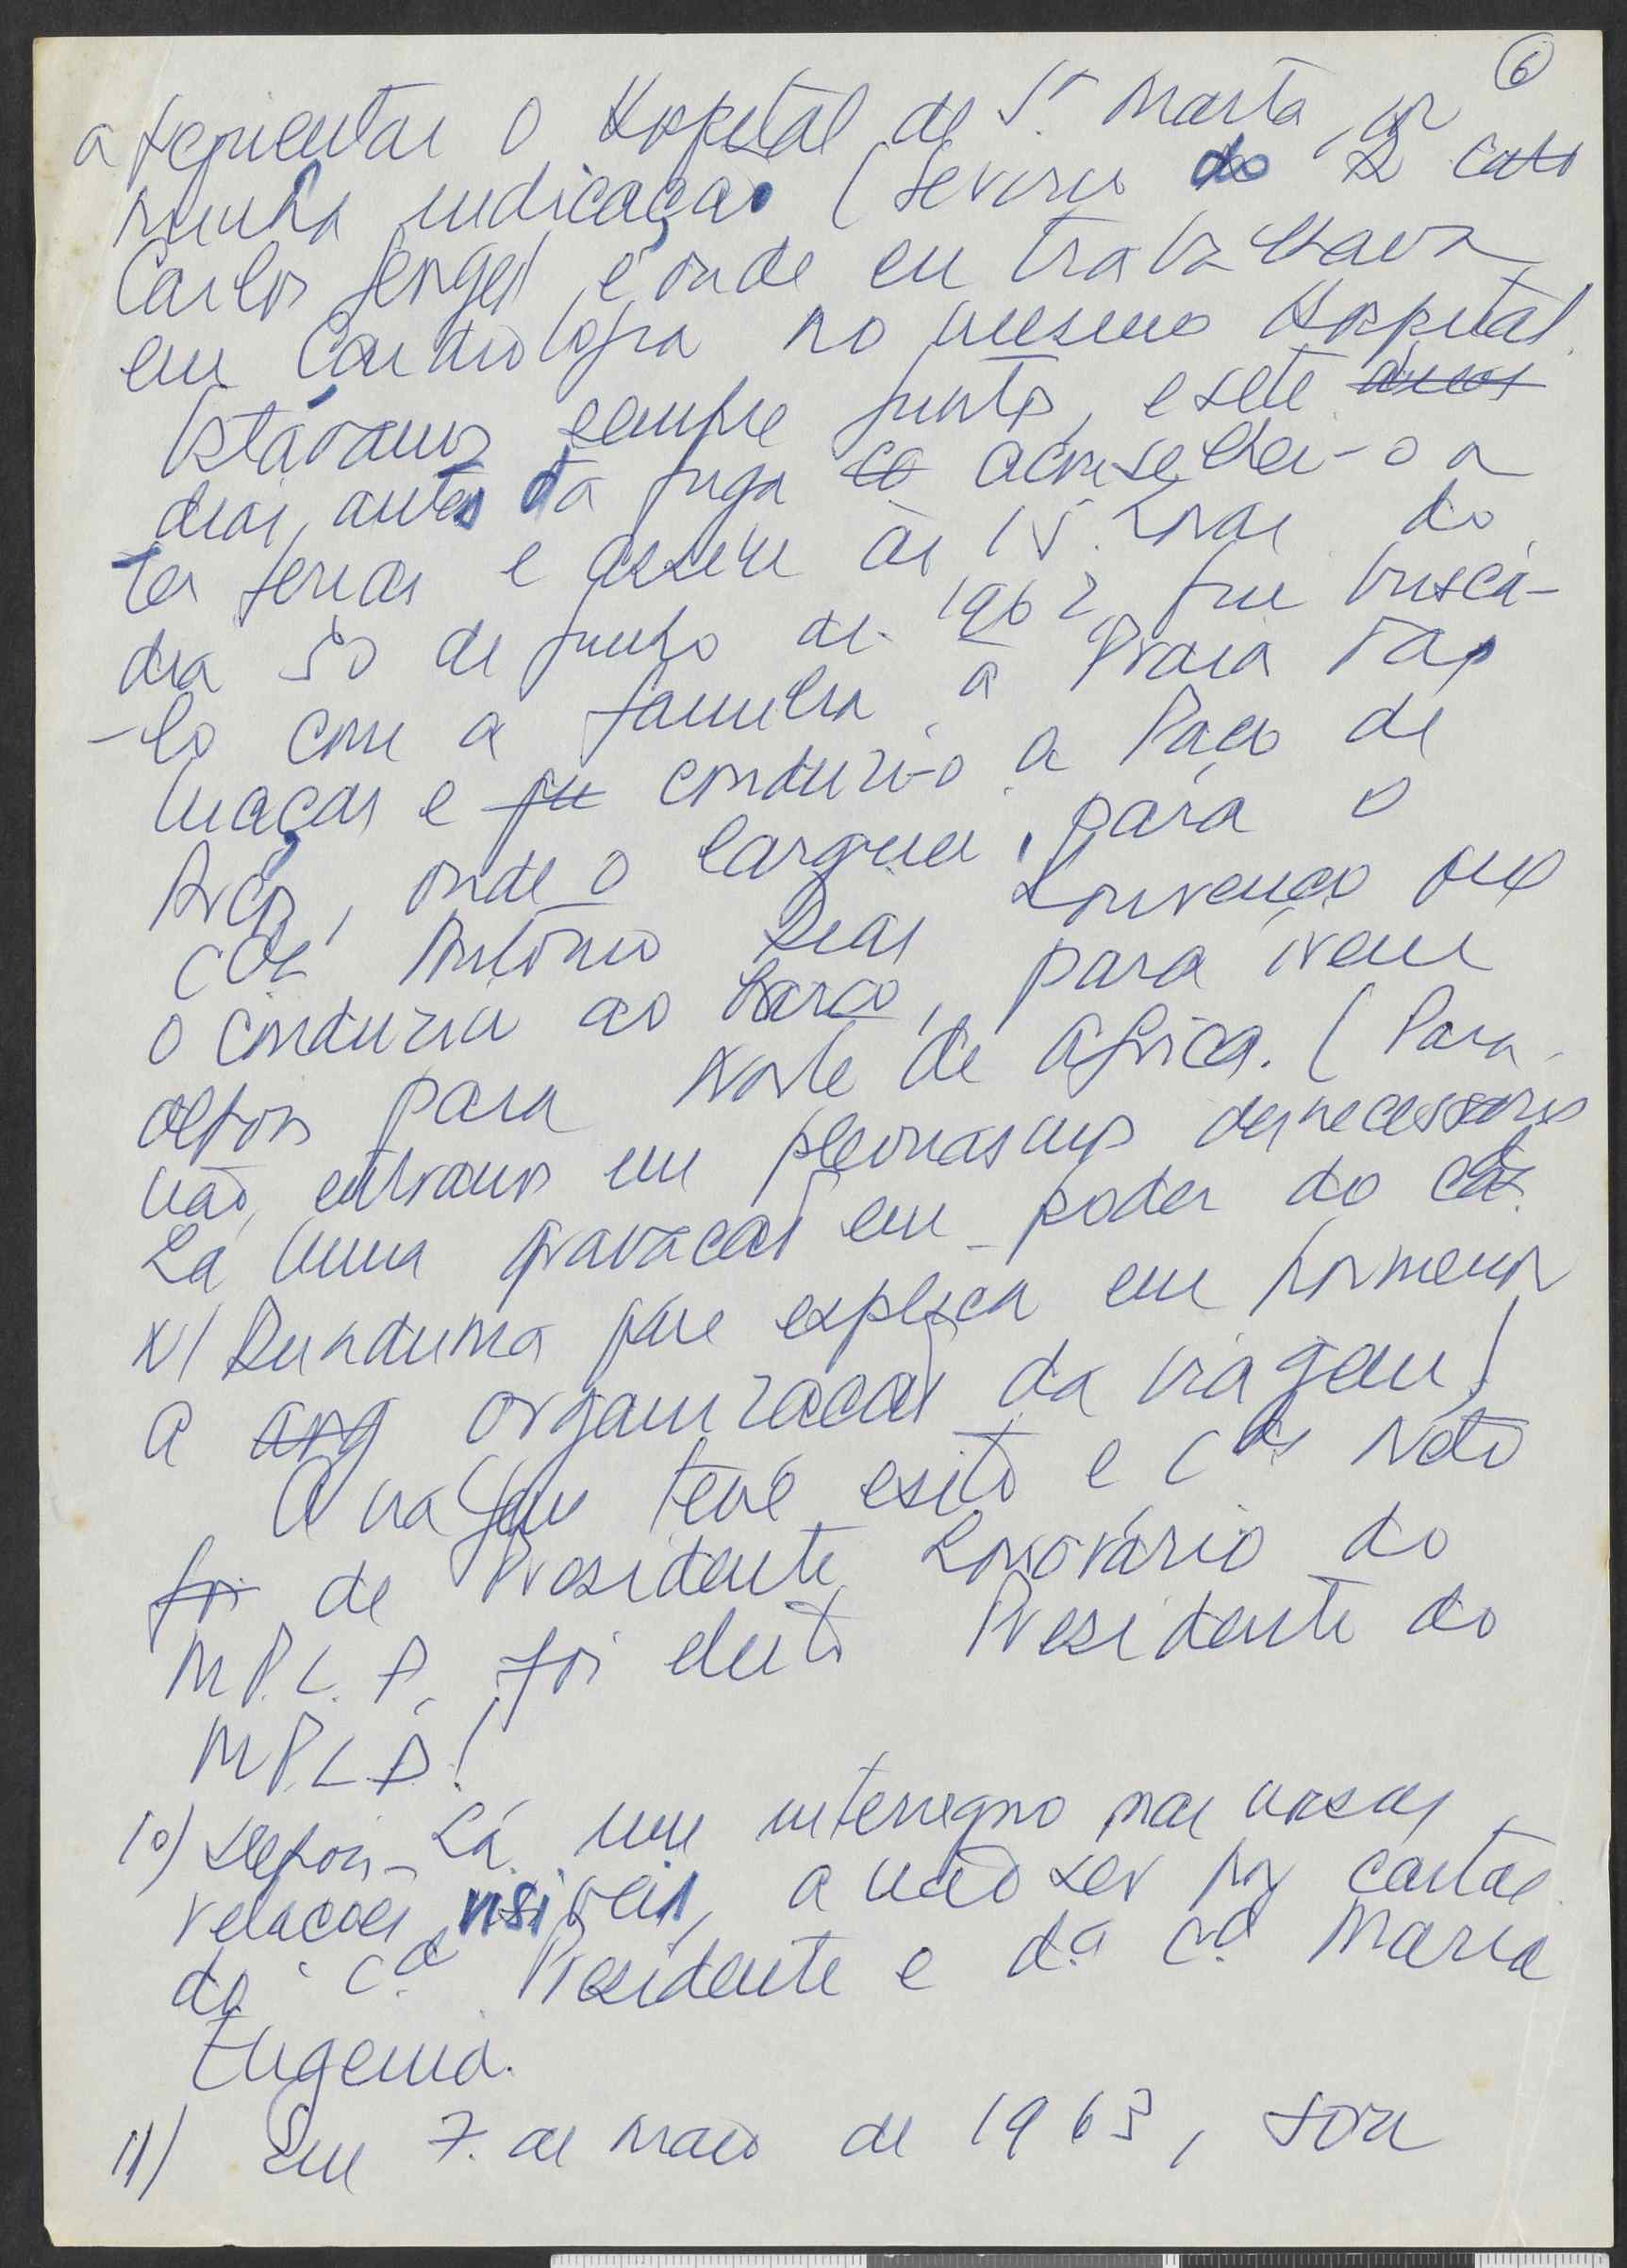 6
a frequentar o Hospital de Sta Marta, por
minha indicação (Serviço do Dr
Carlos Jorge) e onde eu trabalhava
em Cardiologia no mesmo Hospital.
Estávamos sempre juntos, e sete
dias, antes da fuga aconselhei-o a
ter ferias e assim às 15. horas do
dia 30 de junho de 1962 fui buscá-
-lo com a familia, à Praia das
Maçãs e conduzi-o a Paço de
Arcos, onde o larguei, para o
cda António Dias Lourenço que
o conduziu ao barco, para irem
depois para Norte de Africa. (Para
não, entramos em pleonasmos desnecessários
há uma gravação em poder do cda
N/ Dunduma que explica em pormenor
a organização da viagem)
A viagem teve exito e cda Neto
de Presidente honorário do
M.P.L.A. foi eleito Presidente do
M.P.L.A.!
10) Depois há um interregno nas nossas
relações visiveis, a não ser por cartas
do cda Presidente e da cda Maria
Eugenia.
11) Em 7. de Maio de 1963, sou